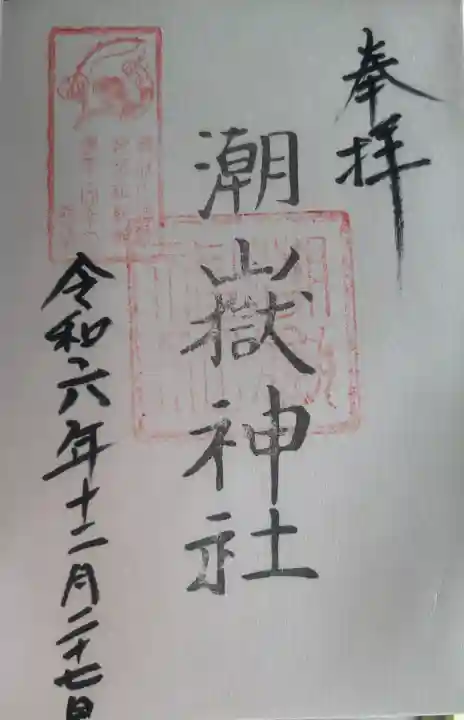 奉拝
潮嶽神社
令和六年十二月二十七日